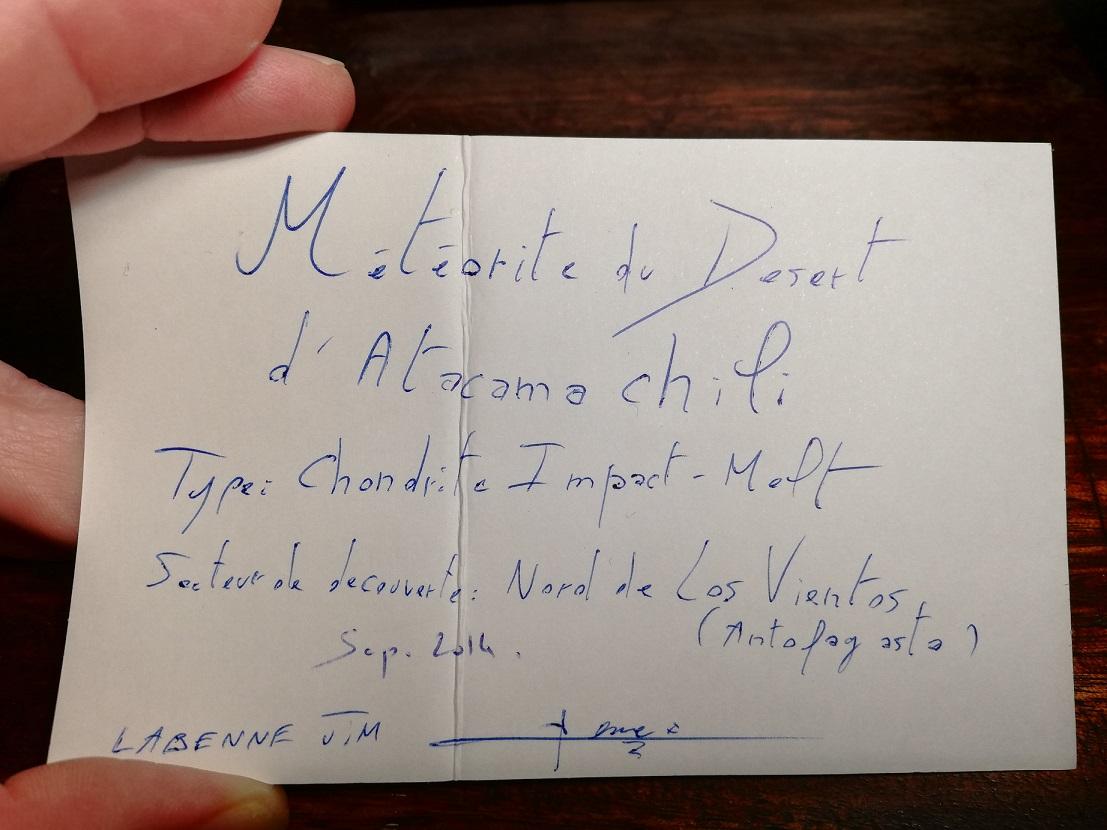 Météorite du Desert
d'Atacama chili
Type: Chondrite Impact-Melt
Secteur de decouverte: Nord de Los Vientos,
(Antofagasta)
Sep. 2014.
LABENNE JIM